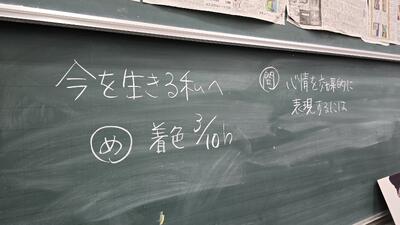 今を生きる私へ
め 着色 3/10h
問 心情を効果的に
表現するには